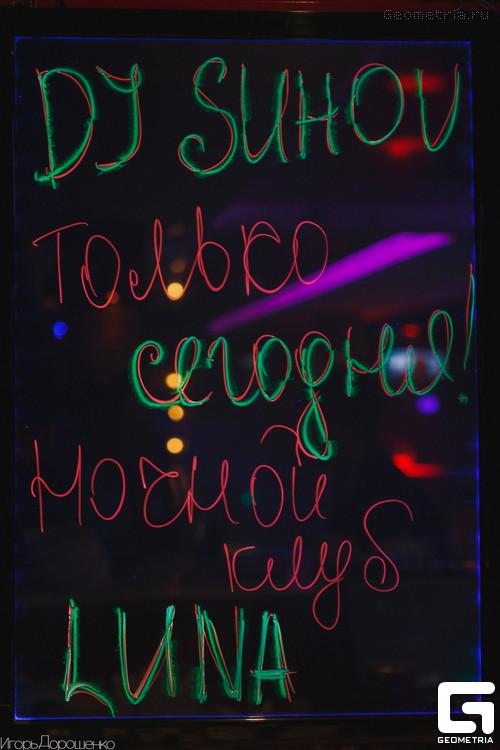 Geometria.ru
DJ SUHOV
только
сегодня!
Ночной
клуб
LUNA
ИгорьДорошенко
GEOMETRIA